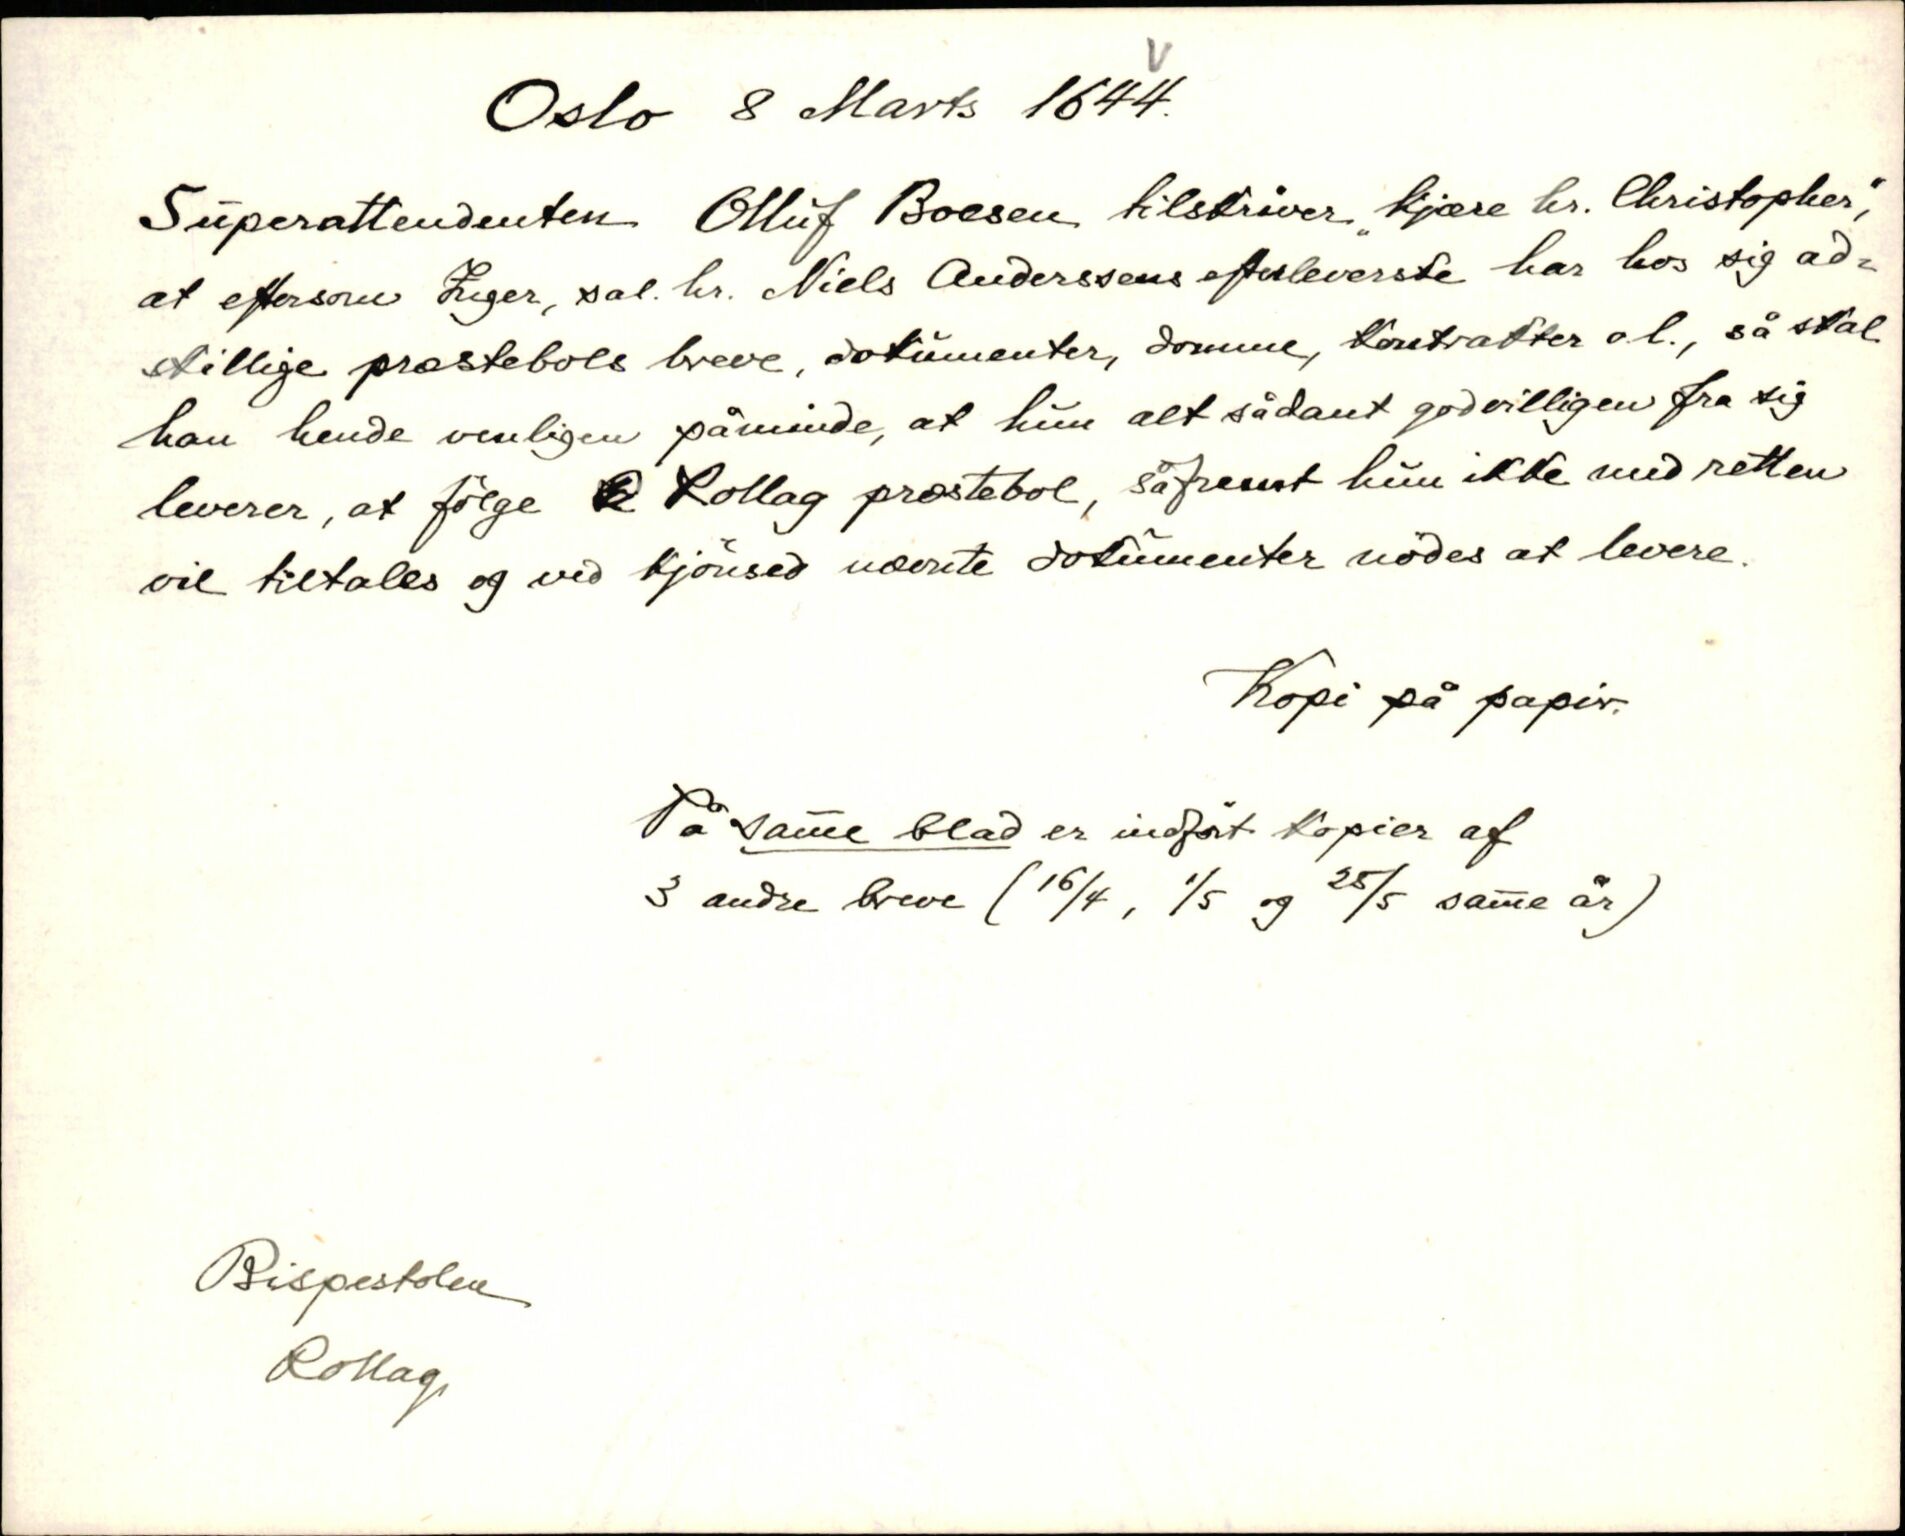 Oslo 8 Marts 1644.
Superattendenten Olluf Boesen tilskriver „kjære hr. Christopher“,
at eftersom Inger, sal. hr. Niels Anderssens efterleverske har hos sig ad-
skillige præstebols breve, dokumenter, domme, kontrakter o.l., så skal
han hende venligen påminde, at hun alt sådant godvilligen fra sig
leverer, at följe Rollag præstebol, såfremt hun ikke med retten
vil tiltales og ved kjönsed nævnte dokumenter nödes at levere.
Kopi på papir.
På sam̅e blad er indfört kopier af
3 andre breve (16/4, 1/5 og 25/5 sam̅e år)
Bispestolen
Rollag.